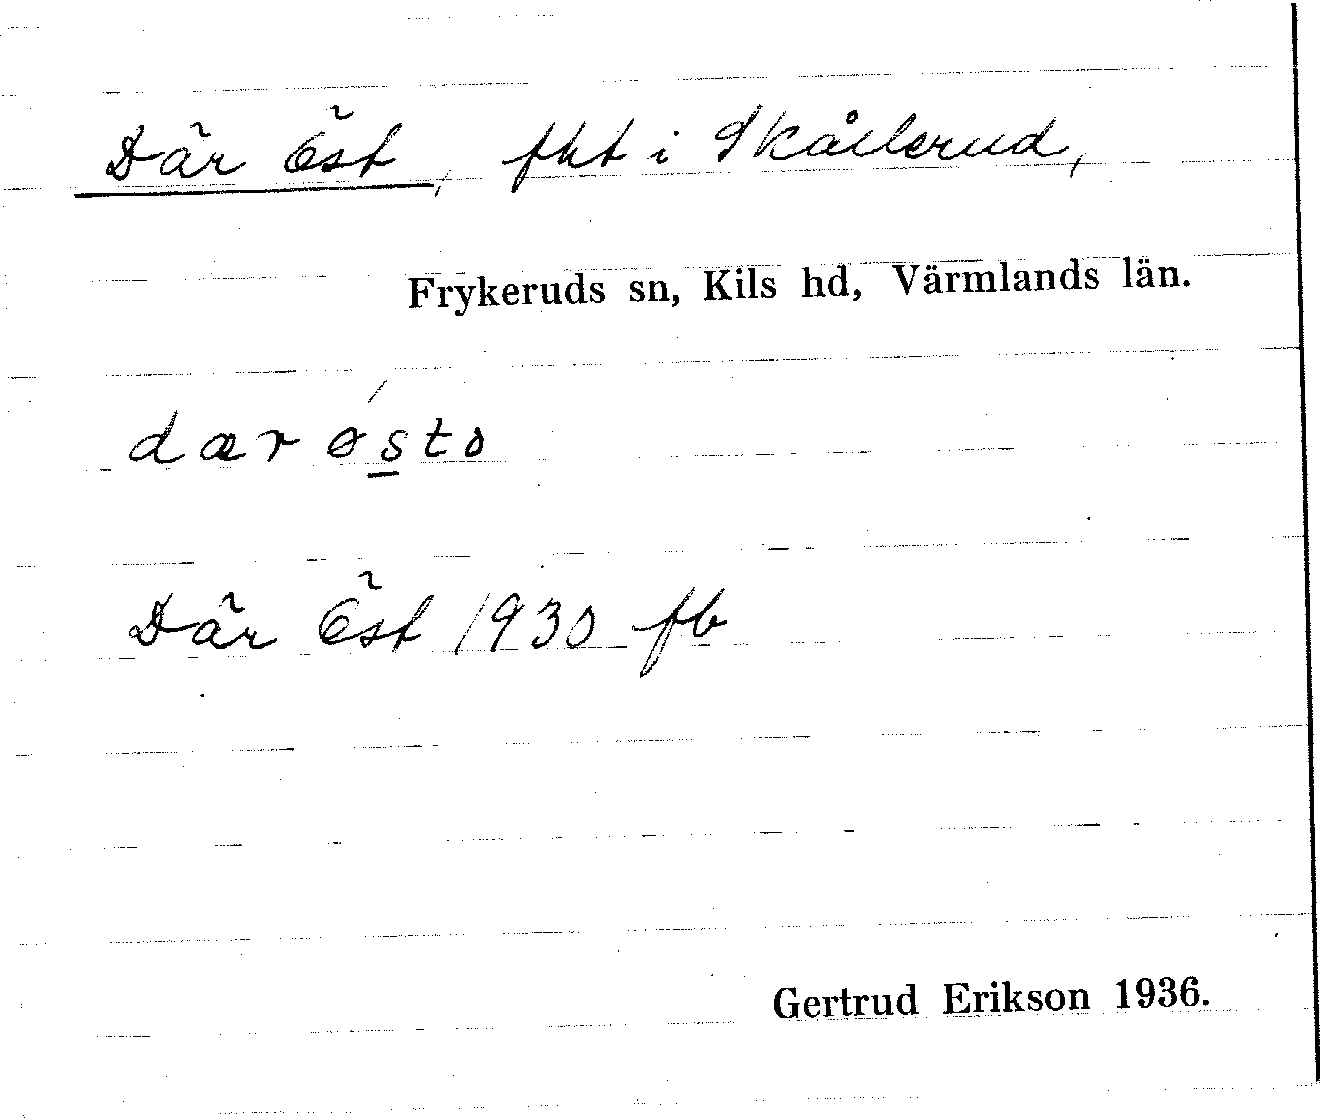 Där Öst, fht i Skållerud,
Frykeruds sn, Kils hd, Värmlands län.
dær østo
Där Öst 1930 fb
Gertrud Erikson 1936.